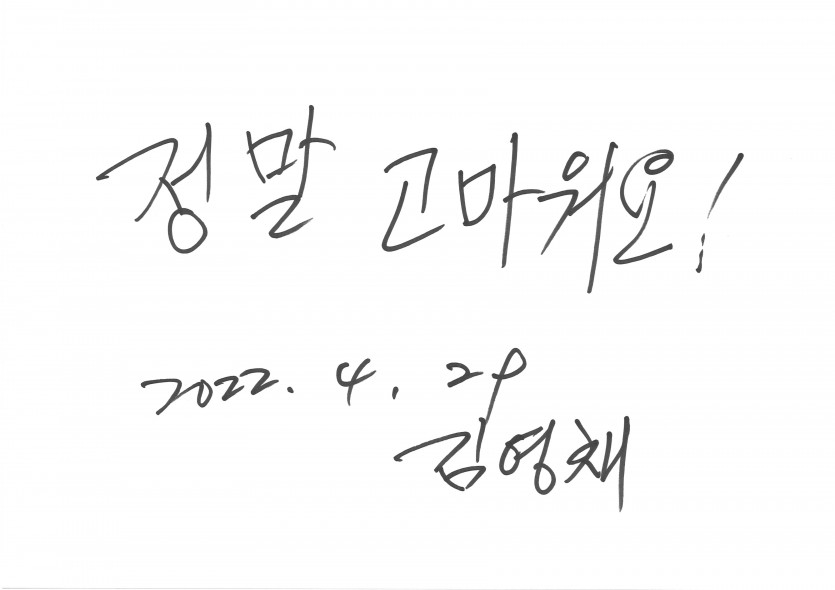 정말 고마워요!
2022. 4. 29
김영채